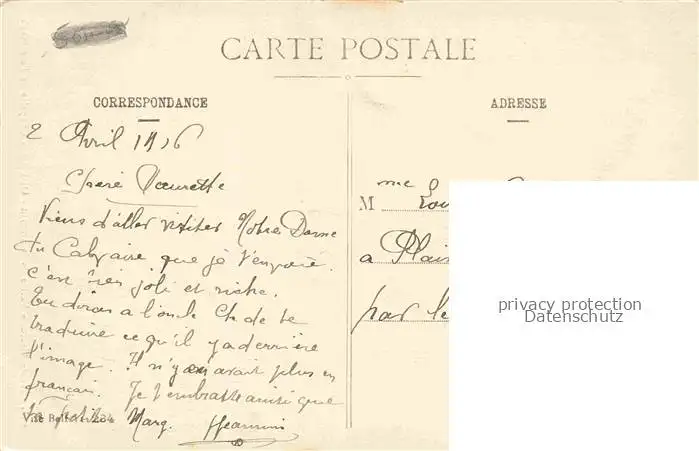 CARTE POSTALE
CORRESPONDANCE
ADRESSE
2 Avril 1916
Chère Soeurette
Viens d'aller visiter Notre Dame
du Calvaire que je t'envoie.
C'est très joli et riche.
Tu diras a l'oncle Ch de te
traduire ce qu'il y a derrière
l'image. Il n'y en avait plus en
français. Je t'embrasse ainsi que
la petite Marg.
Mme
M
a Plais
par le
privacy protection
Datenschutz